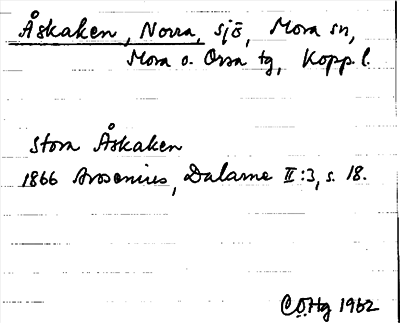 Åskaken, Norra, sjö, Mora sn,
Mora o. Orsa tg, Kopp. l.
Stora Åskaken
1866 Arosenius, Dalarne II:3, s. 18.
CÖHg 1962